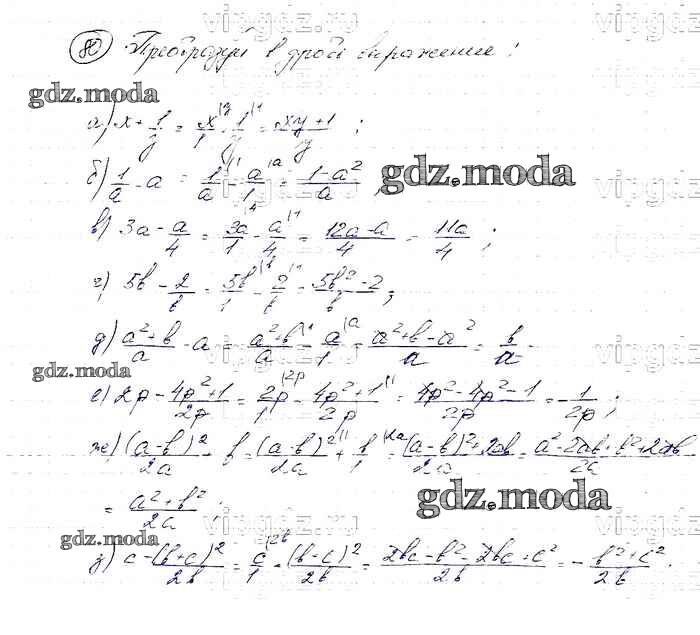 vipgdz.ru
80 Преобразуй в дробь выражение:
gdz.moda
а) x + 1/y = x/1 |y + 1/y |1 = (xy+1)/y ;
б) 1/a - a = 1/a |1 - a/1 |a = (1-a²)/a ; gdz.moda vipgdz.ru
в) 3a - a/4 = 3a/1 |4 - a/4 |1 = (12a-a)/4 = 11a/4 ;
г) 5b - 2/b = 5b/1 |b - 2/b |1 = (5b²-2)/b ;
д) (a²+b)/a - a = (a²+b)/a |1 - a/1 |a = (a²+b-a²)/a = b/a .
gdz.moda
е) 2p - (4p²+1)/2p = 2p/1 |2p - (4p²+1)/2p |1 = (4p²-4p²-1)/2p = -1/2p ;
ж) (a-b)²/2a + b = (a-b)²/2a |1 + b/1 |2a = ((a-b)²+2ab)/2a = (a²-2ab+b²+2ab)/2a
= (a²+b²)/2a ; gdz.moda
gdz.moda
з) c - (b+c)²/2b = c/1 |2b - (b+c)²/2b = (2bc-b²-2bc-c²)/2b = -(b²+c²)/2b .